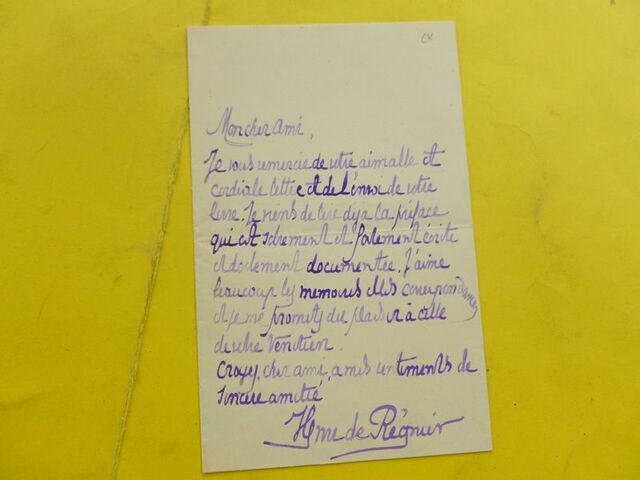 CX
Mon cher Ami,
Je vous remercie de votre aimable et
cordiale lettre et de l'envoi de votre
livre. Je viens de lire deja la préface
qui est sobrement et fortement écrite
et doctement documentée. J'aime
beaucoup les memoires et les correspondances
et je me promets du plaisir à celle
de votre Venitien.
Croyez, cher ami, à mes sentiments de
sincère amitié
Henri de Régnier